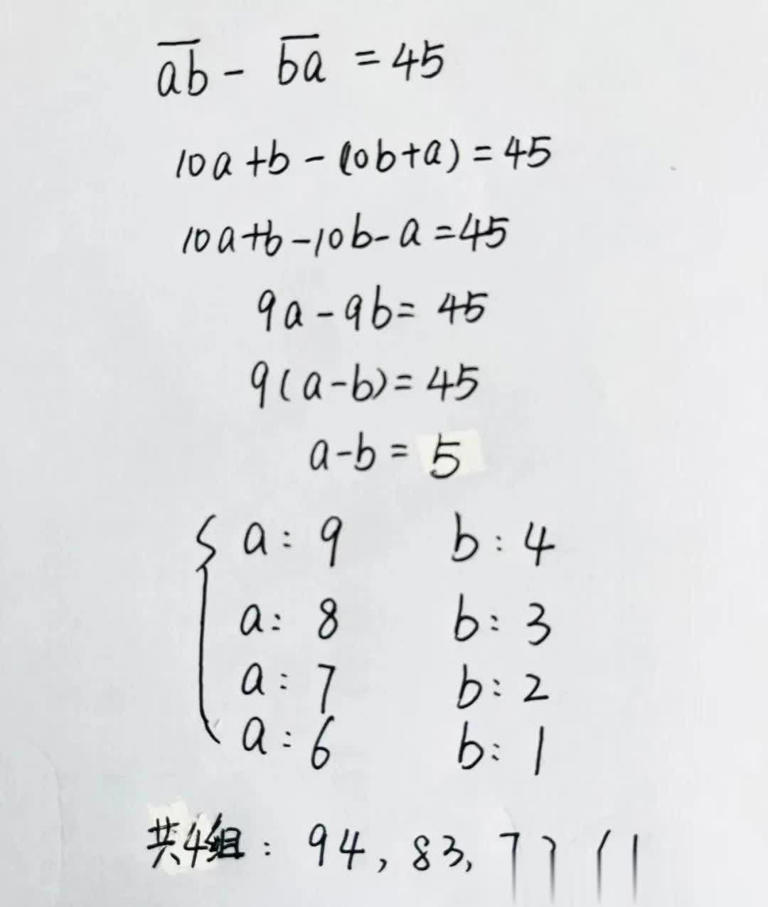 ab - ba = 45
10a+b-(10b+a)=45
10a+b-10b-a=45
9a-9b=45
9(a-b)=45
a-b=5
{ a: 9 b: 4
a: 8 b: 3
a: 7 b: 2
a: 6 b: 1
共4组: 94, 83,